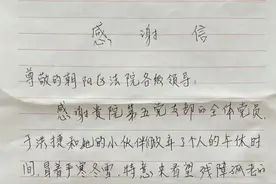 感谢信
尊敬的朝阳区法院各级领导：
感谢贵院第五党支部的全体党员，
于洁捷和她的小伙伴们放弃了个人的午休时
间，冒着严寒冬雪，特意来看望残障孤老的